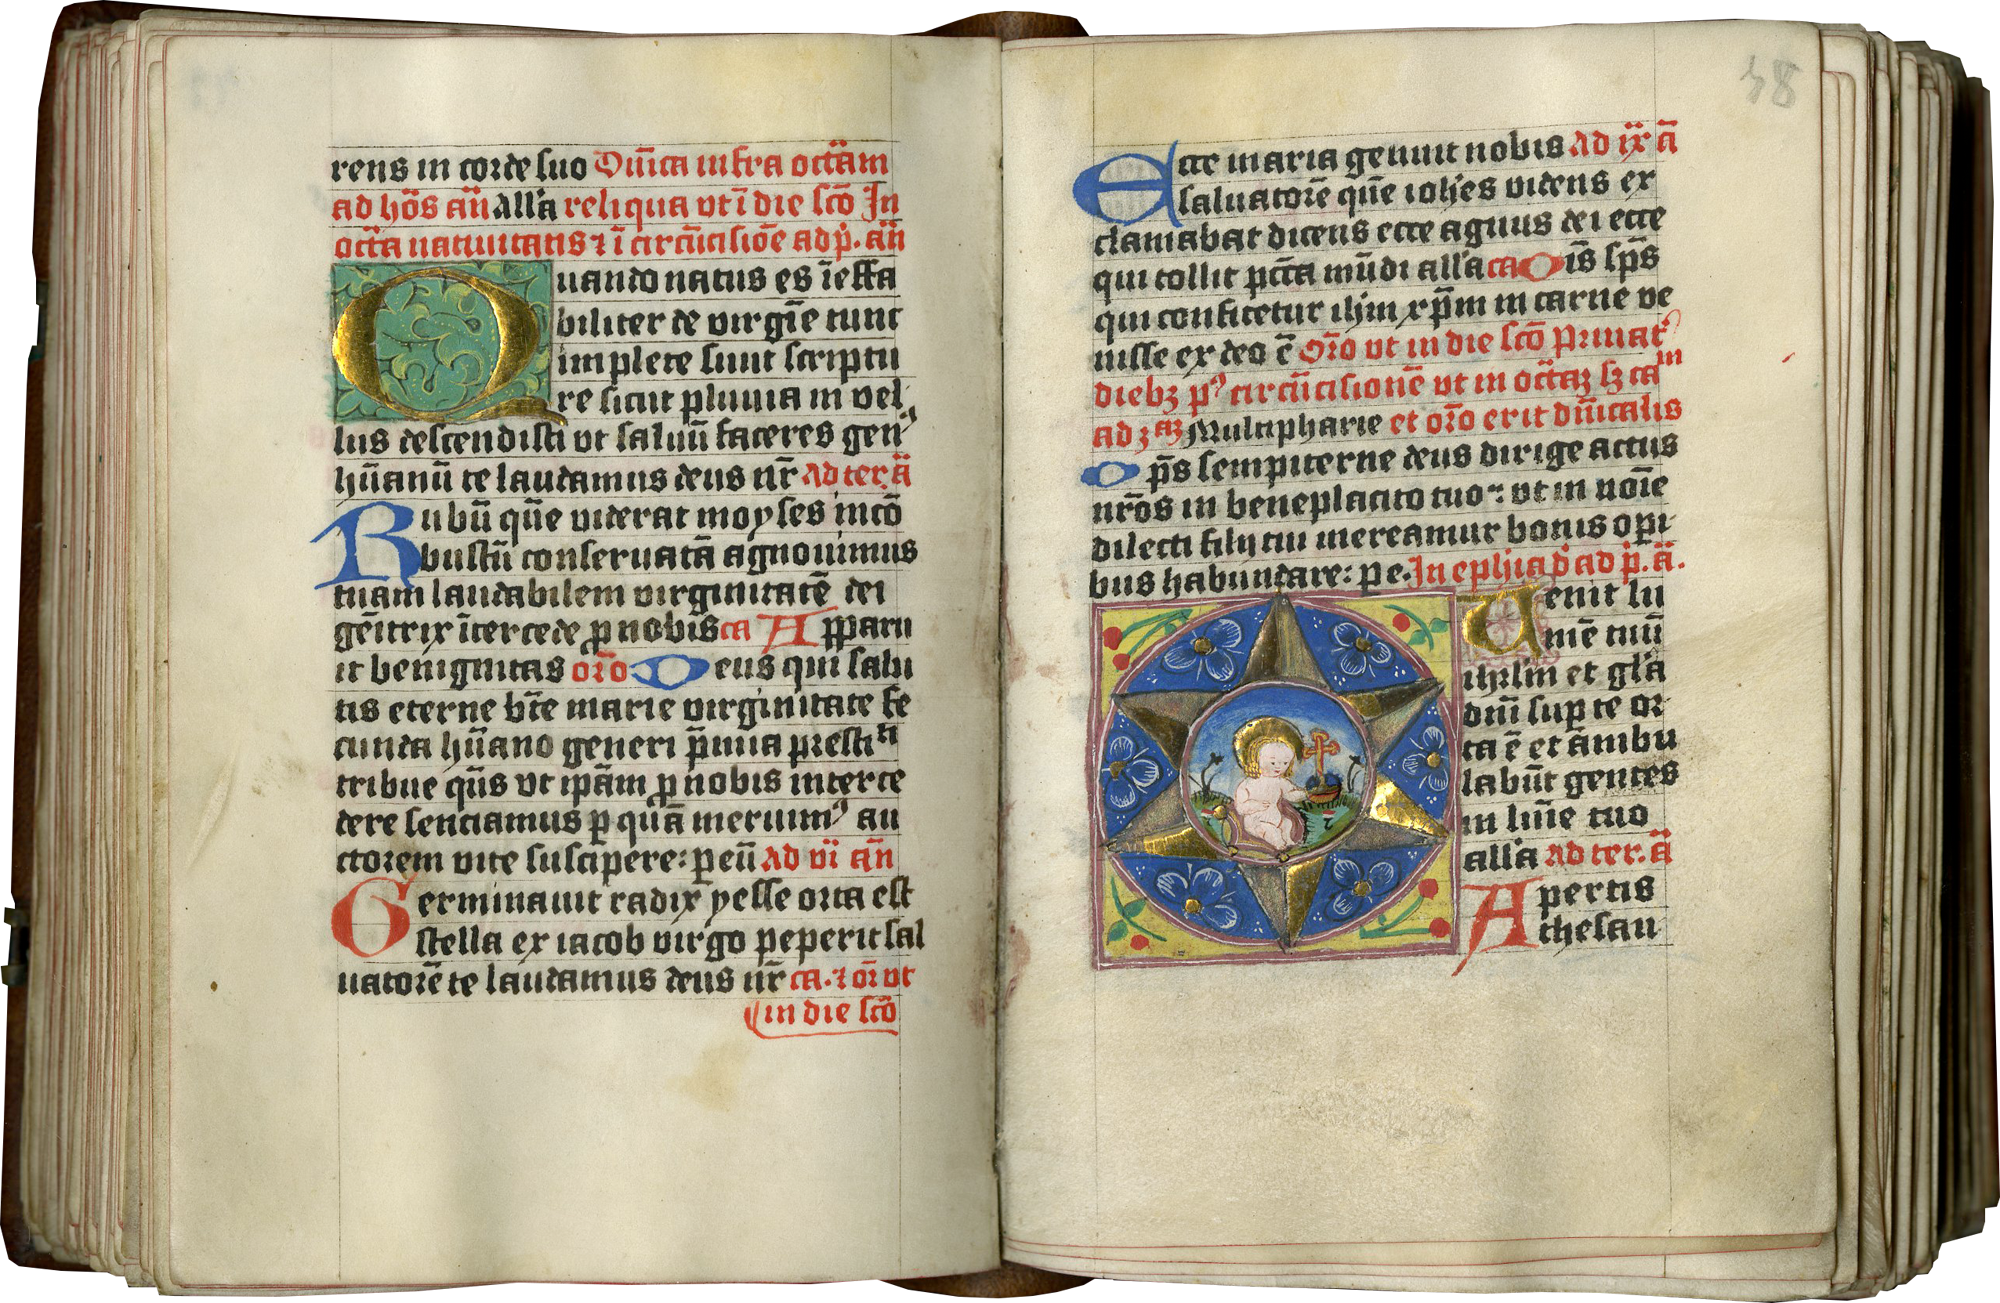 rens in corde suo Dūica infra octām
ad hōs an̄ all'a reliqua ut ī die scō In
octā natiuitatis ⁊ ī circūcisiōe ad p̄. an̄
Quando natus es īeffa
biliter de virgīe tunc
implete sunt scriptu
re sicut pluuia in vel
lus descendisti ut saluū faceres genꝰ
hūanū te laudamus deus nr̄ Ad ter. ā
Rubū quē viderat moyses incō
bustū conseruatā agnouimus
tuam laudabilem virginitatē dei
gēitrix ītercede ꝓ nobis ca Apparu
it benignitas orō Deus qui salu
tis eterne btē marie virginitate fe
cunda hūano generi p̄mia prestiti
tribue qs̄ ut ipām ꝓ nobis interce
dere senciamus ꝑ quā meruimꝰ au
ctorem vite suscipere: ꝑ eū Ad vi an̄
Germinauit radix yesse orta est
stella ex iacob virgo peperit sal
uatorē te laudamus deus nr̄ ca. ⁊ or̄ ut
in die scō
48
Ecce maria genuit nobis Ad ix ā
saluatorē quē ioh̄es videns ex
clamabat dicens ecce agnus dei ecce
qui tollit pctā mūdi all'a ca Oīs sps̄
qui confitetur ih̄m xp̄m in carne ve
nisse ex deo ē Orō ut in die scō Priuatꝰ
diebꝫ pꝰ circūcisionē ut in octaꝫ sꝫ ca in
ad ꝫaꝫ Multipharie et orō erit dūicalis
Op̄s sempiterne deus dirige actus
nrōs in beneplacito tuo: ut in noīe
dilecti filij tui mereamur bonis opi
bus habundare: p e. In ephia dī ad p̄. ā.
Uenit lu
mē tuū
ihrlm̄ et gl'a
dn̄i suꝑ te or
ta ē et ambu
labūt gentes
in lūīe tuo
all'a ad ter. ā
Apertis
thesau